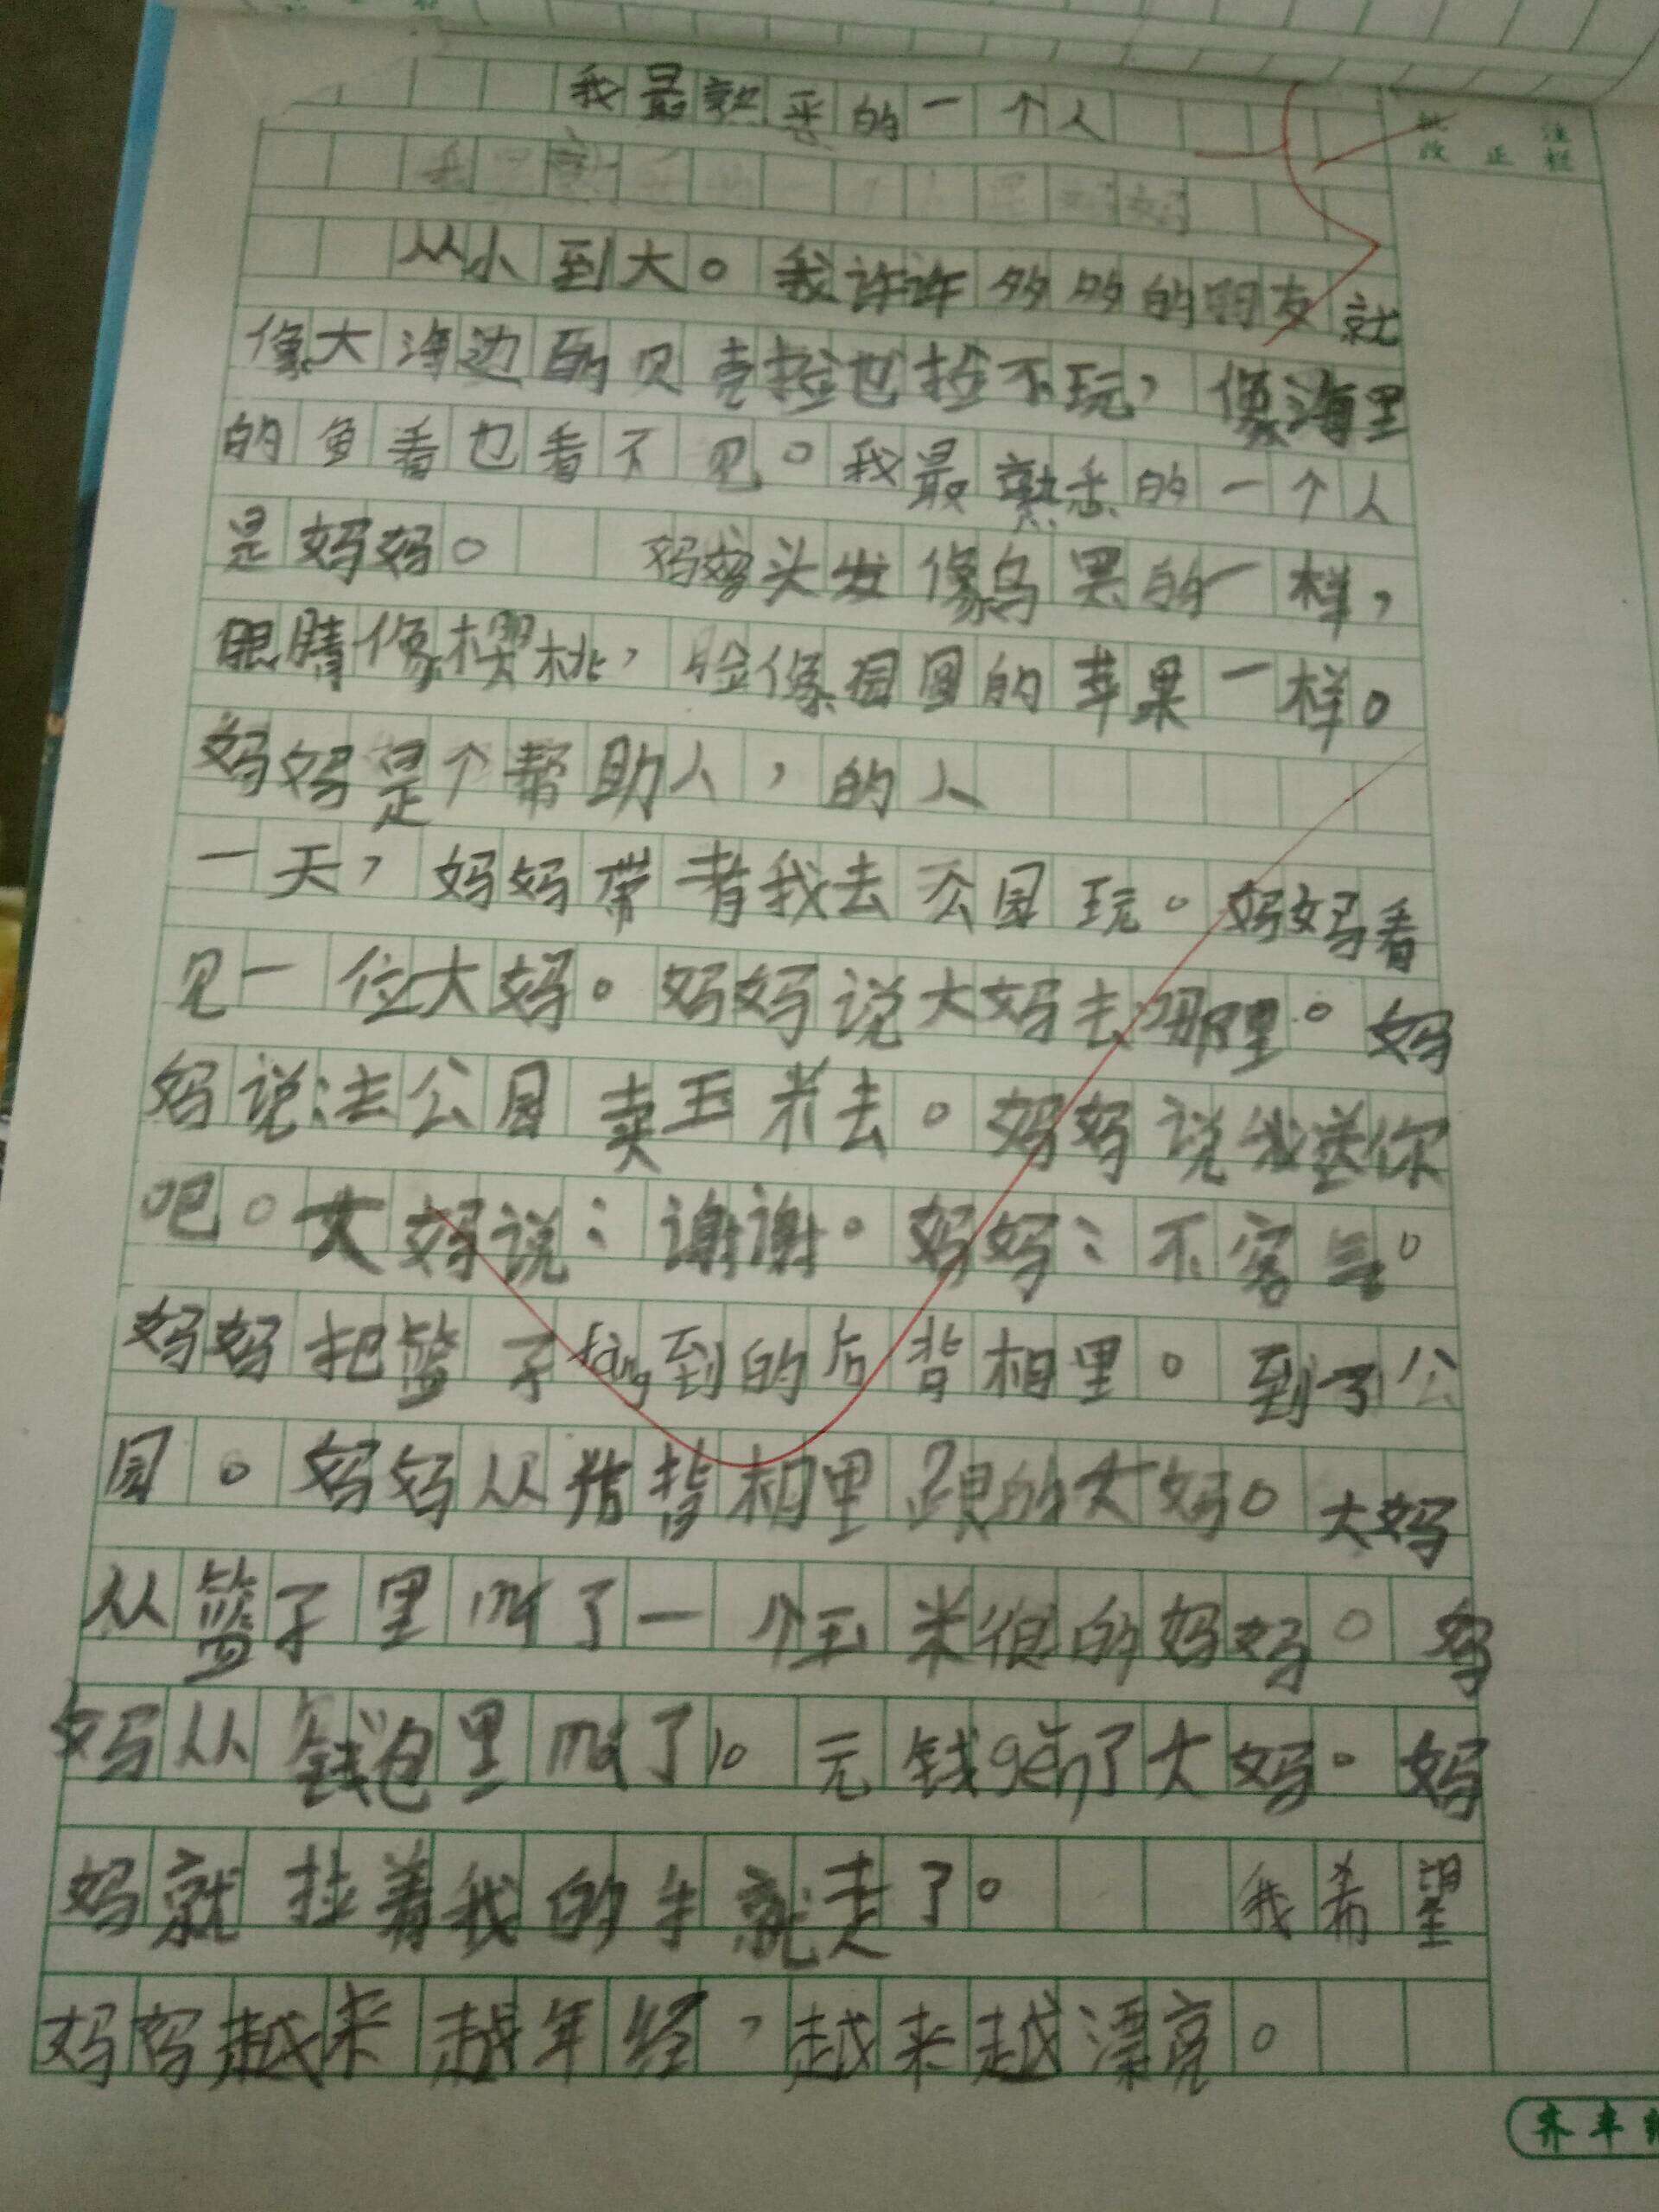 我最熟悉的一个人
批注
改正栏
从小到大。我许许多多的朋友就
像大海边的贝壳捡也捡不玩，像海里
的鱼看也看不见。我最熟悉的一个人
是妈妈。 妈妈头发像乌黑的一样，
眼睛像樱桃，脸像圆圆的苹果一样。
妈妈是个帮助人，的人
一天，妈妈带着我去公园玩。妈妈看
见一位大妈。妈妈说大妈去哪里。妈
妈说：去公园卖玉米去。妈妈说我送你
吧。大妈说：谢谢。妈妈：不客气。
妈妈把篮子fàng到的后背相里。到了公
园。妈妈从背相里跟的大妈。大妈
从篮子里ná了一个玉米很的妈妈。妈
妈从钱包里ná了10元钱gěn了大妈。妈
妈就拉着我的手就走了。 我希望
妈妈越来越年经，越来越漂亮。
齐丰